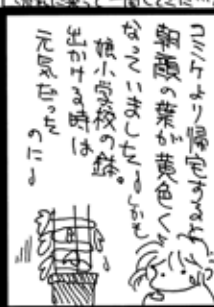 コミケより帰宅すると
朝霞の葉が黄色く
なっていました！しかも
娘小学校の鉢。
出かける時は
元気だった
のに！